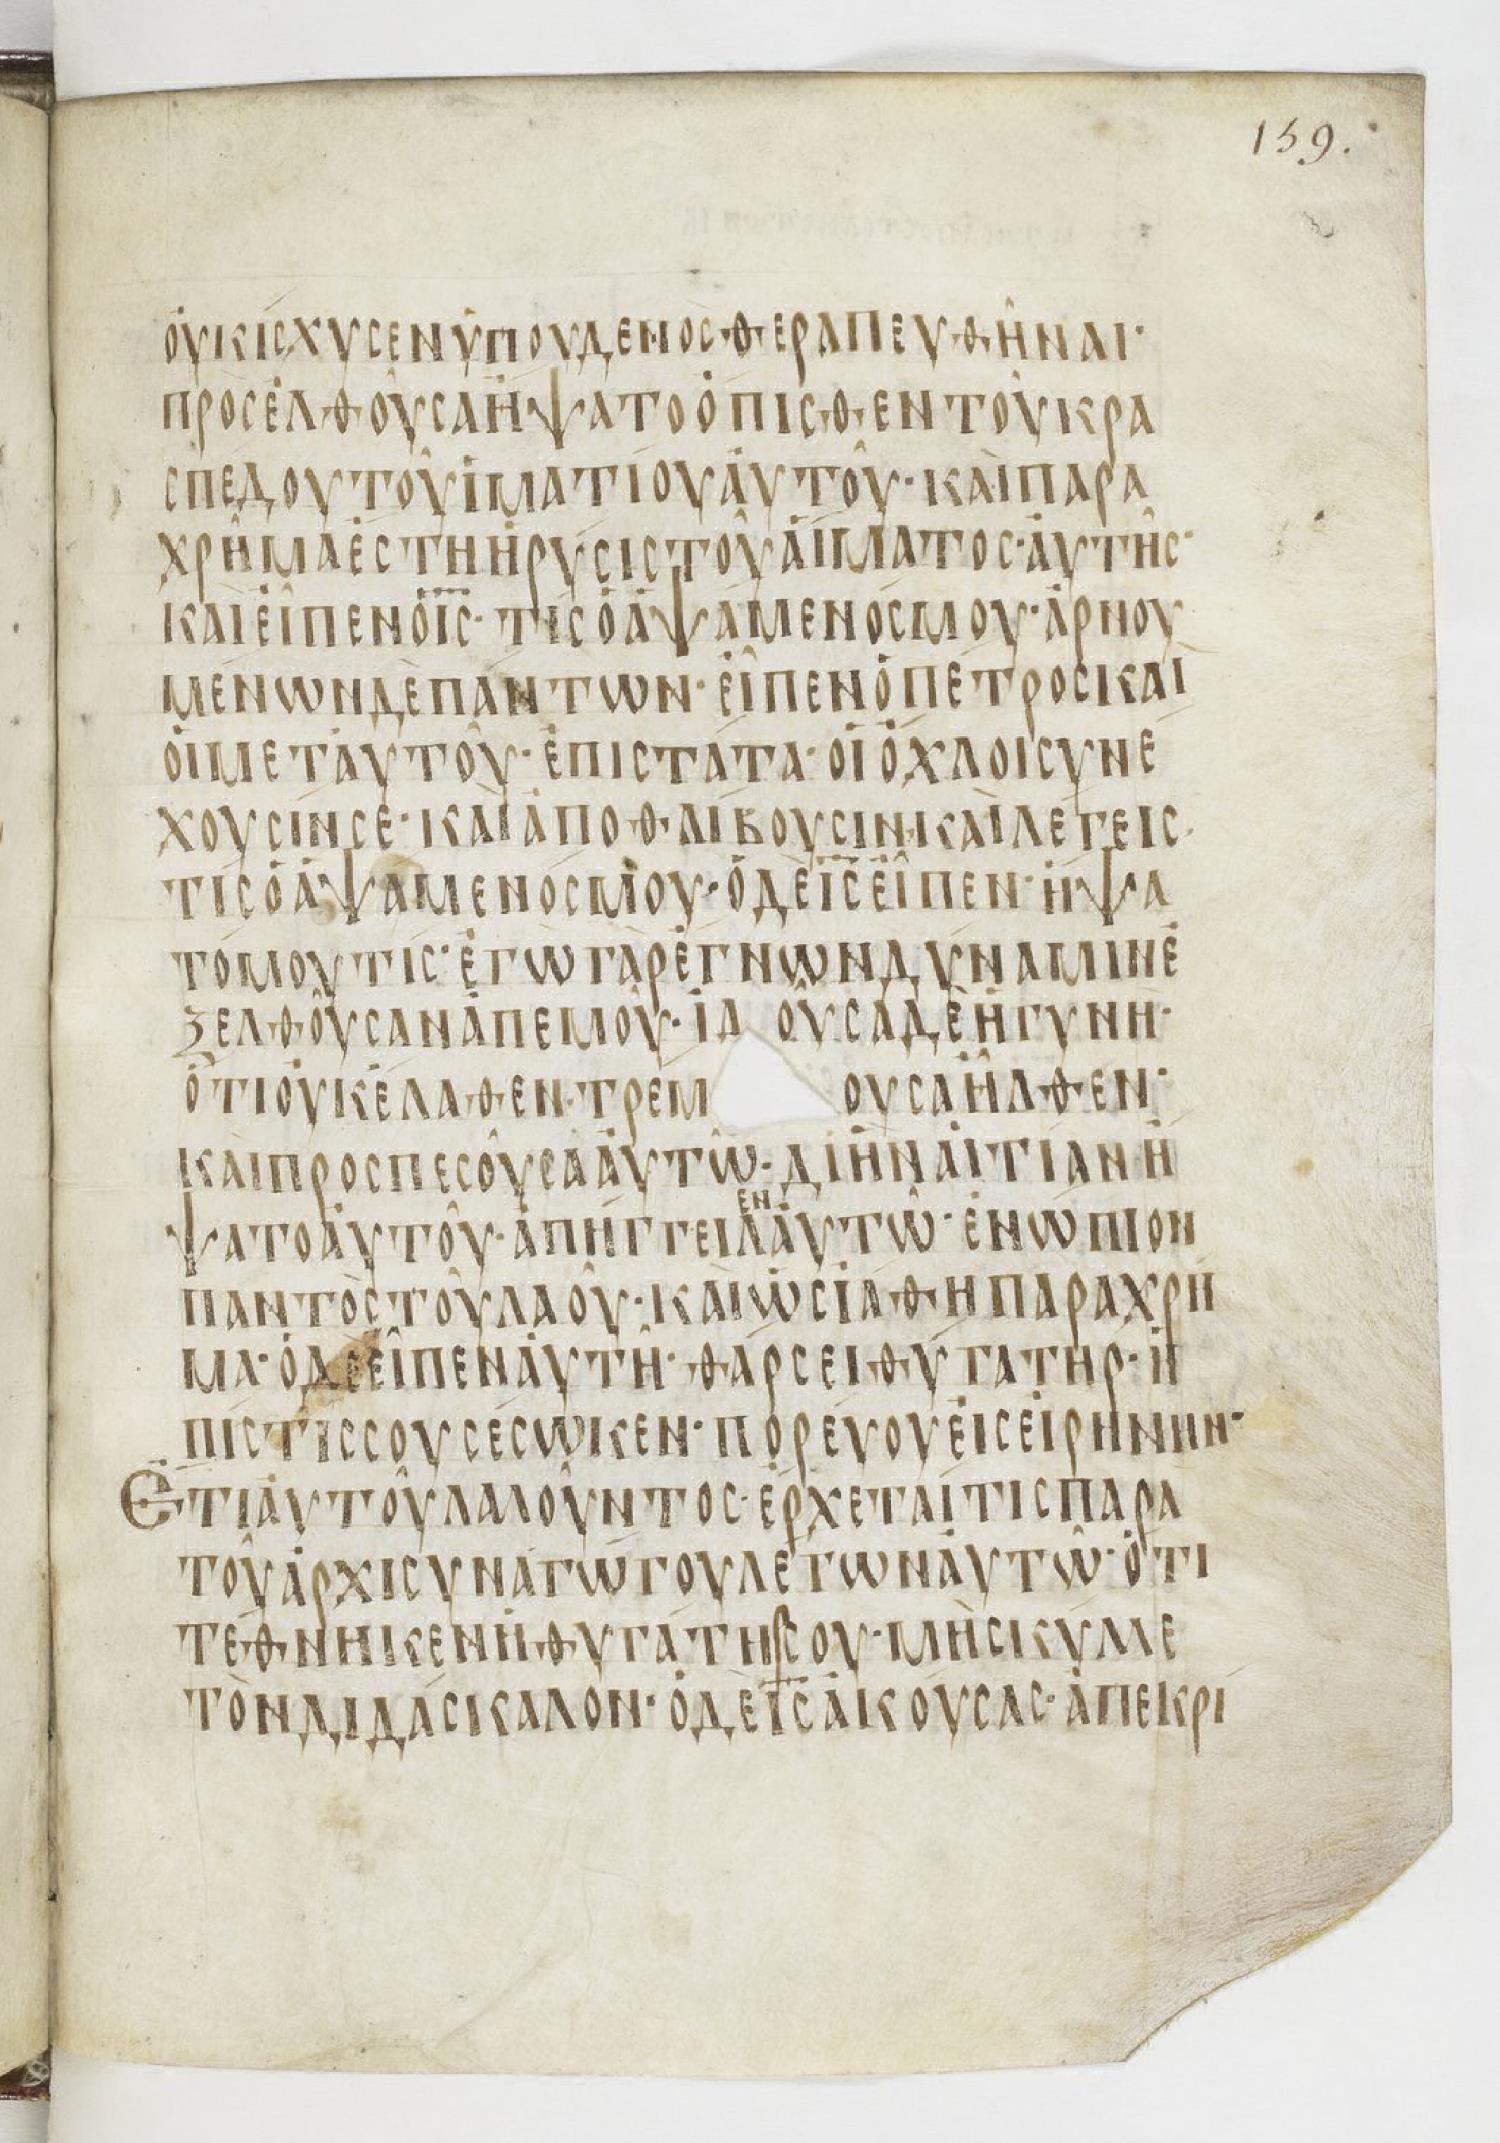 159.
ΟΥ̓ΚΊΣΧΥΣΕΝΫΠΟΥΔΕΝΟΣΘΕΡΑΠΕΥΘΗ͂ΝΑΙ·
ΠΡΟΣΕΛΘΟΥ͂ΣΑἭΨΑΤΟὌΠΙΣΘΕΝΤΟΥ͂ΚΡΑ
ΣΠΈΔΟΥΤΟΥ͂ΙΜΑΤΊΟΥΑΥ̓ΤΟΥ͂· ΚΑῚΠΑΡΑ
ΧΡΗ͂ΜΑἜΣΤΗἩΡΎΣΙΣΤΟΥ͂ΑἽΜΑΤΟΣ·ΑΥ̓ΤΗ͂Σ·
ΚΑῚΕἾΠΕΝὉΙΣ· ΤΊΣὉἉΨΆΜΕΝΟΣΜΟΥ· ἈΡΝΟΥ
ΜΈΝΩΝΔῈΠΆΝΤΩΝ· ΕἾΠΕΝὉΠΈΤΡΟΣΚΑΙ
ΟἹΜΕΤΑΥ̓ΤΟΥ͂· ἘΠΙΣΤΆΤΑ· ΟἹὌΧΛΟΙΣΥΝΈ
ΧΟΥΣΊΝΣΕ· ΚΑῚἈΠΟΘΛΊΒΟΥΣΙΝ·ΚΑῚΛΈΓΕΙΣ·
ΤΊΣὉἉΨΆΜΕΝΌΣΜΟΥ· ὉΔῈΙΣΕἾΠΕΝ· ἭΨΑ
ΤΌΜΟΥΤΙΣ· ἘΓῺΓᾺΡἜΓΝΩΝΔΎΝΑΜΙΝἘ
ΞΕΛΘΟΥ͂ΣΑΝἈΠΕΜΟΥ͂· ΙΔΟΥ͂ΣΑΔῈἩΓΥΝῊ·
ὍΤΙΟΥ̓ΚΈΛΑΘΕΝ·ΤΡΕΜΟΥΣΑἮΛΘΕΝ·
ΚΑΙΠΡΟΣΠΕΣΟΥ͂ΣΑΑΥ̓ΤΩ͂· ΔΙἫΝΑἸΤΊΑΝἭ
ΨΑΤΟΑΥ̓ΤΟΥ͂· ἈΠΉΓΓΕΙΛΕΝΑΥ̓ΤΩ͂· ἘΝΏΠΙΟΝ
ΠΑΝΤῸΣΤΟΥ͂ΛΑΟΥ͂· ΚΑῚὩΣἸΑΘΗΠΑΡΑΧΡΗ͂
ΜΑ· ὉΔΕΕἾΠΕΝΑΥ̓ΤΗ͂· ΘΆΡΣΕΙΘΎΓΑΤΗΡ· Ἡ
ΠΊΣΤΙΣΣΟΥΣΕΣΩΚΕΝ· ΠΟΡΕΥΟΥΕἸΣΕἸΡΉΝΗΝ·
ἜΤΙΑΥ̓ΤΟΥ͂ΛΑΛΟΥ͂ΝΤΟΣ· ἜΡΧΕΤΑΊΤΙΣΠΑΡΑ
ΤΟΥ͂ἈΡΧΙΣΥΝΑΓΏΓΟΥΛΈΓΩΝΑΥ̓ΤΩ͂· ὍΤΙ
ΤΈΘΝΗΚΕΝἩΘΥΓΆΤΗΡΣΟΥ· ΜῊΣΚΎΛΛΕ
ΤῸΝΔΙΔΆΣΚΑΛΟΝ· ὉΔῈΙΣἈΚΟΎΣΑΣ· ἈΠΕΚΡΊ